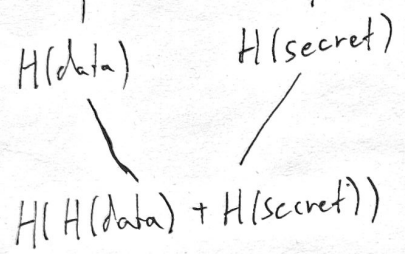 H(data) H(secret)
H(H(data) + H(secret))